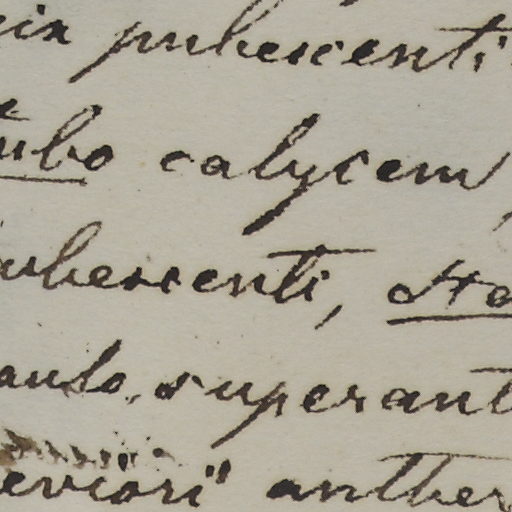 pubescenti
ubo calycem
ubescenti, Sta
aulo superant
eviori anther